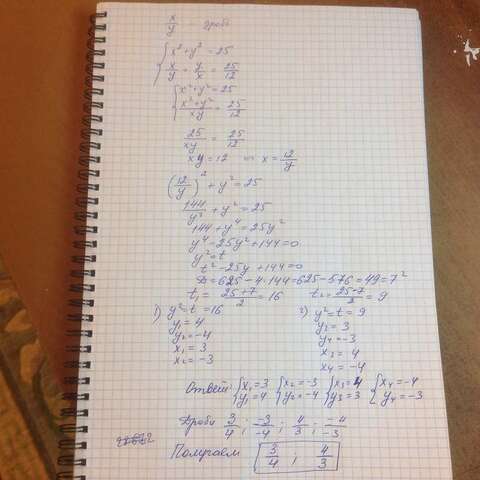 x/y - дробь
{ x² + y² = 25
x/y + y/x = 25/12
{ x² + y² = 25
(x² + y²)/xy = 25/12
25/xy = 25/12
xy = 12 => x = 12/y
(12/y)² + y² = 25
144/y² + y² = 25
144 + y⁴ = 25y²
y⁴ - 25y² + 144 = 0
y² = t
t² - 25y + 144 = 0
D = 625 - 4·144 = 625 - 576 = 49 = 7²
t₁ = (25+7)/2 = 16 t₂ = (25-7)/2 = 9
1) y² = t = 16 2) y² = t = 9
y₁ = 4 y₃ = 3
y₂ = -4 y₄ = -3
x₁ = 3 x₃ = 4
x₂ = -3 x₄ = -4
Ответ { x₁ = 3 { x₂ = -3 { x₃ = 4 { x₄ = -4
y₁ = 4 y₂ = -4 y₃ = 3 y₄ = -3
Дроби 3/4 ; -3/-4 ; 4/3 ; -4/-3
Получаем 3/4 ; 4/3